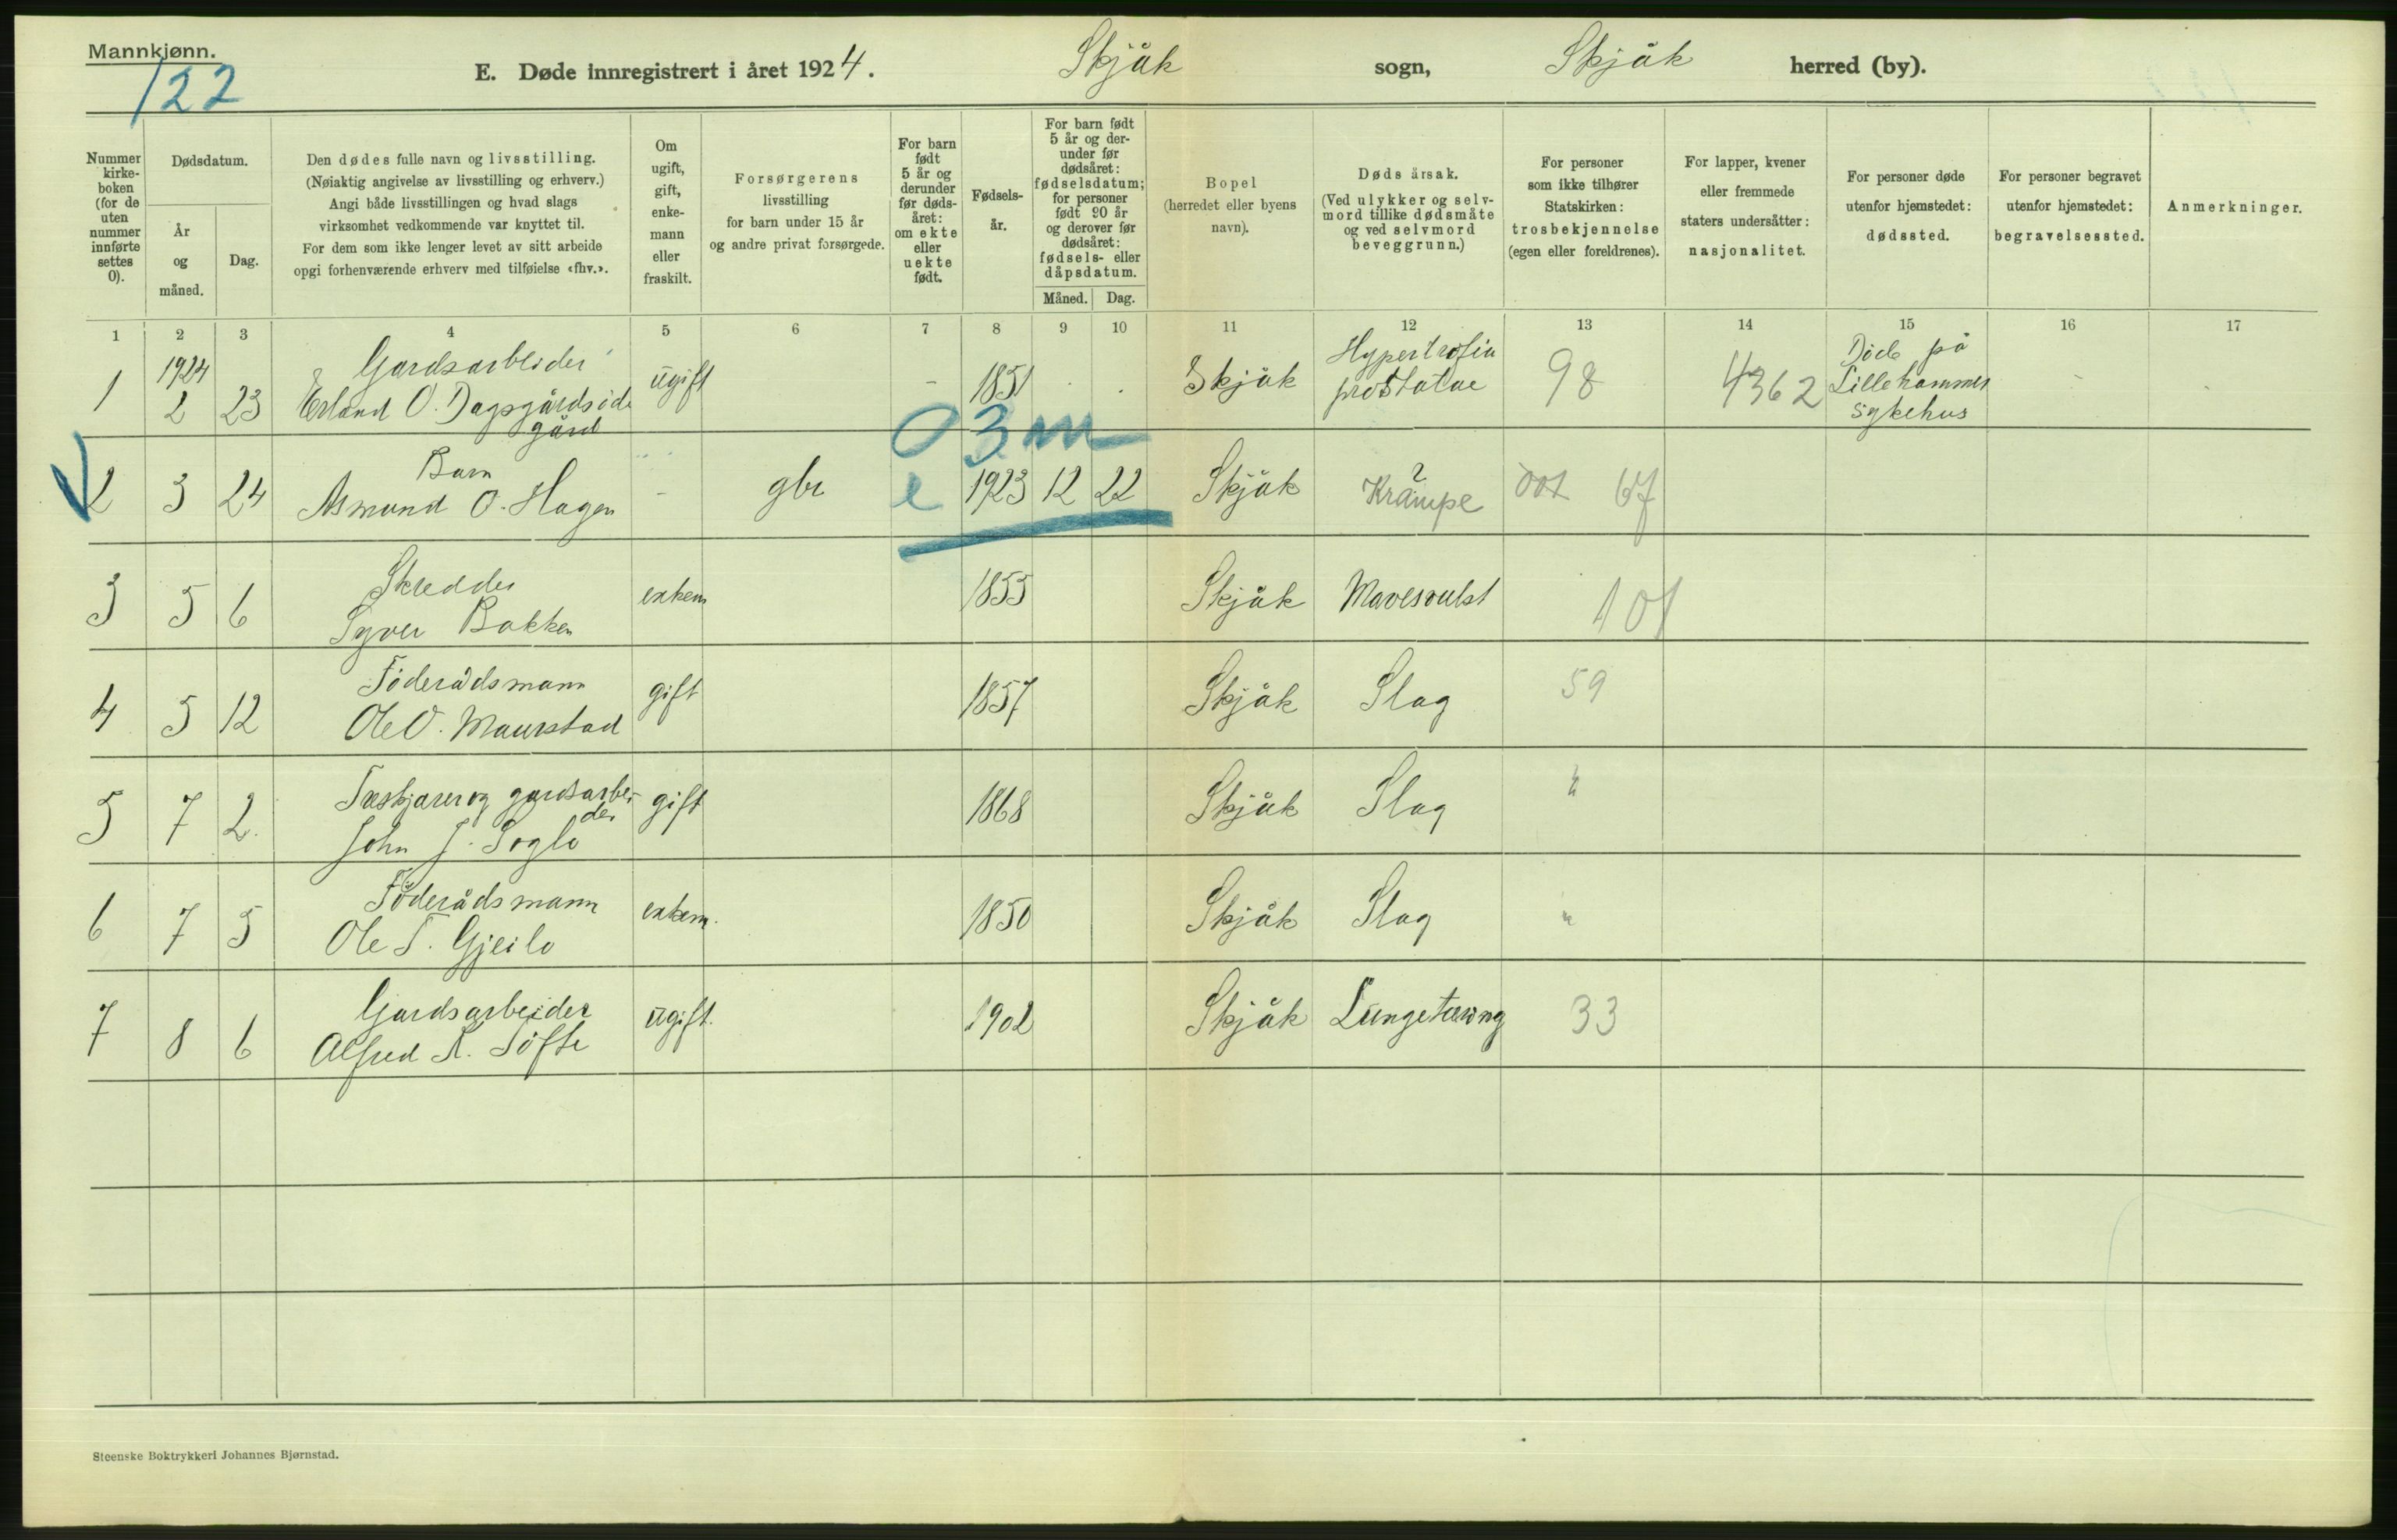 Mannkjønn.
122
E. Døde innregistrert i året 1924. Skjåk sogn, Skjåk herred (by).
Nummer kirke-boken (for de uten nummer innførte settes 0).
Dødsdatum.
År og måned.
Dag.
Den dødes fulle navn og livsstilling.
(Nøiaktig angivelse av livsstilling og erhverv.)
Angi både livsstillingen og hvad slags
virksomhet vedkommende var knyttet til.
For dem som ikke lenger levet av sitt arbeide
opgi forhenværende erhverv med tilføielse «fhv.».
Om ugift, gift, enke-mann eller fraskilt.
Forsørgerens
livsstilling
for barn under 15 år
og andre privat forsørgede.
For barn født 5 år og derunder før døds-året: om ekte eller uekte født.
Fødsels-år.
For barn født 5 år og der-under før dødsåret: fødselsdatum; for personer født 90 år og derover før dødsåret: fødsels- eller dåpsdatum.
Måned. Dag.
Bopel
(herredet eller byens
navn).
Dødsårsak.
(Ved ulykker og selv-
mord tillike dødsmåte
og ved selvmord
beveggrunn.)
For personer
som ikke tilhører
Statskirken:
trosbekjennelse
(egen eller foreldrenes).
For lapper, kvener
eller fremmede
staters undersåtter:
nasjonalitet.
For personer døde
utenfor hjemstedet:
dødssted.
For personer begravet
utenfor hjemstedet:
begravelsessted.
Anmerkninger.
1 2 3 4 5 6 7 8 9 10 11 12 13 14 15 16 17
1 1924 2 23 Gardsarbeider Erland O. Dagsgårdsøde gård ugift - 1851 Skjåk Hypertrofia prostatae 98 4362 Døde på Lillehammer sykehus -
0 3 m
2 3 24 Barn Asmund O. Hagen - gbr e 1923 12 22 Skjåk ? Krampe 67
3 5 6 Skredder Syver Bakken enkem 1855 Skjåk Mavesvulst 101
4 5 12 Föderådsmann Ole O. Maurstad gift 1857 Skjåk Slag 59
5 7 2. Træskjærer og gardsarbeider John J. Soglo gift 1868 Skjåk Slag "
6 7 5 Föderådsmann Ole T. Gjeilo enkem. 1850 Skjåk Slag "
7 8 6 Gardsarbeider Alfred K. Tøfte ugift. 1902 Skjåk Lungetæring 33
Steenske Boktrykkeri Johannes Bjørnstad.